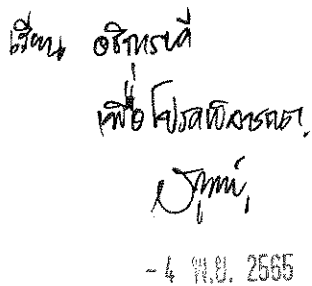 เรียน อธิการบดี
เพื่อโปรดพิจารณา
- 4 พ.ย. 2565